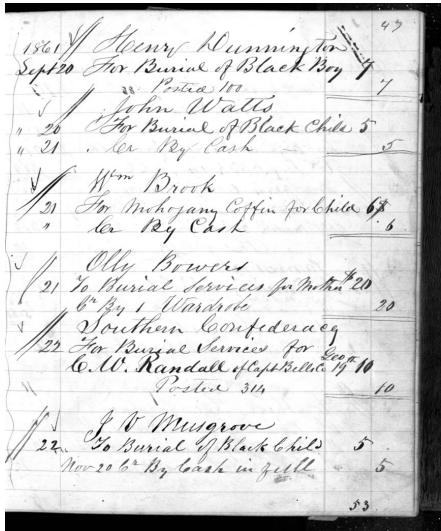 47
1861 Henry Dunnington
Sept 20 For Burial of Black Boy 7
Posted 100 7
John Watts
" 20 For Burial of Black Child 5
" 21 Cr By Cash 5
Wm Brook
21 For Mohogany Coffin for Child 6
" Cr By Cash 6
Olly Bowers
21 To Burial Services for Mother $20
Cr By 1 Wardrobe 20
Southern Confederacy
22 For Burial Services for
C. W. Randall of Capt Bells Co 19 Geo 10
" Posted 314 10
J V Musgrove
22 To Burial of Black Child 5
Nov 20 Cr By Cash in full 5
53